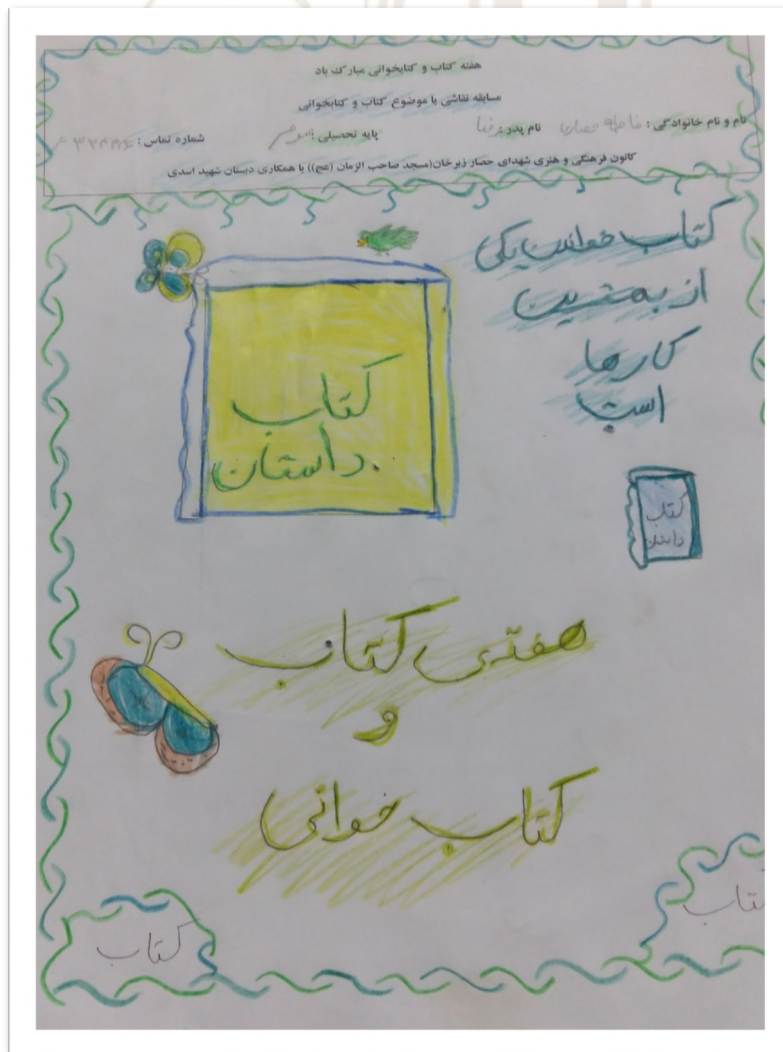 هفته کتاب و کتابخوانی مبارک باد
مسابقه نقاشی با موضوع کتاب و کتابخوانی
نام و نام خانوادگی : فاطمه حصاری نام پدر : رضا پایه تحصیلی : سوم شماره تماس :
کانون فرهنگی و هنری شهدای حصار زیرخان(مسجد صاحب الزمان (عج)) با همکاری دبستان شهید اسدی
کتاب خواندن یکی
از بهترین
کارها
است
کتاب
داستان
کتاب
داستان
هفته‌ی کتاب
و
کتاب خوانی
کتاب
تاب